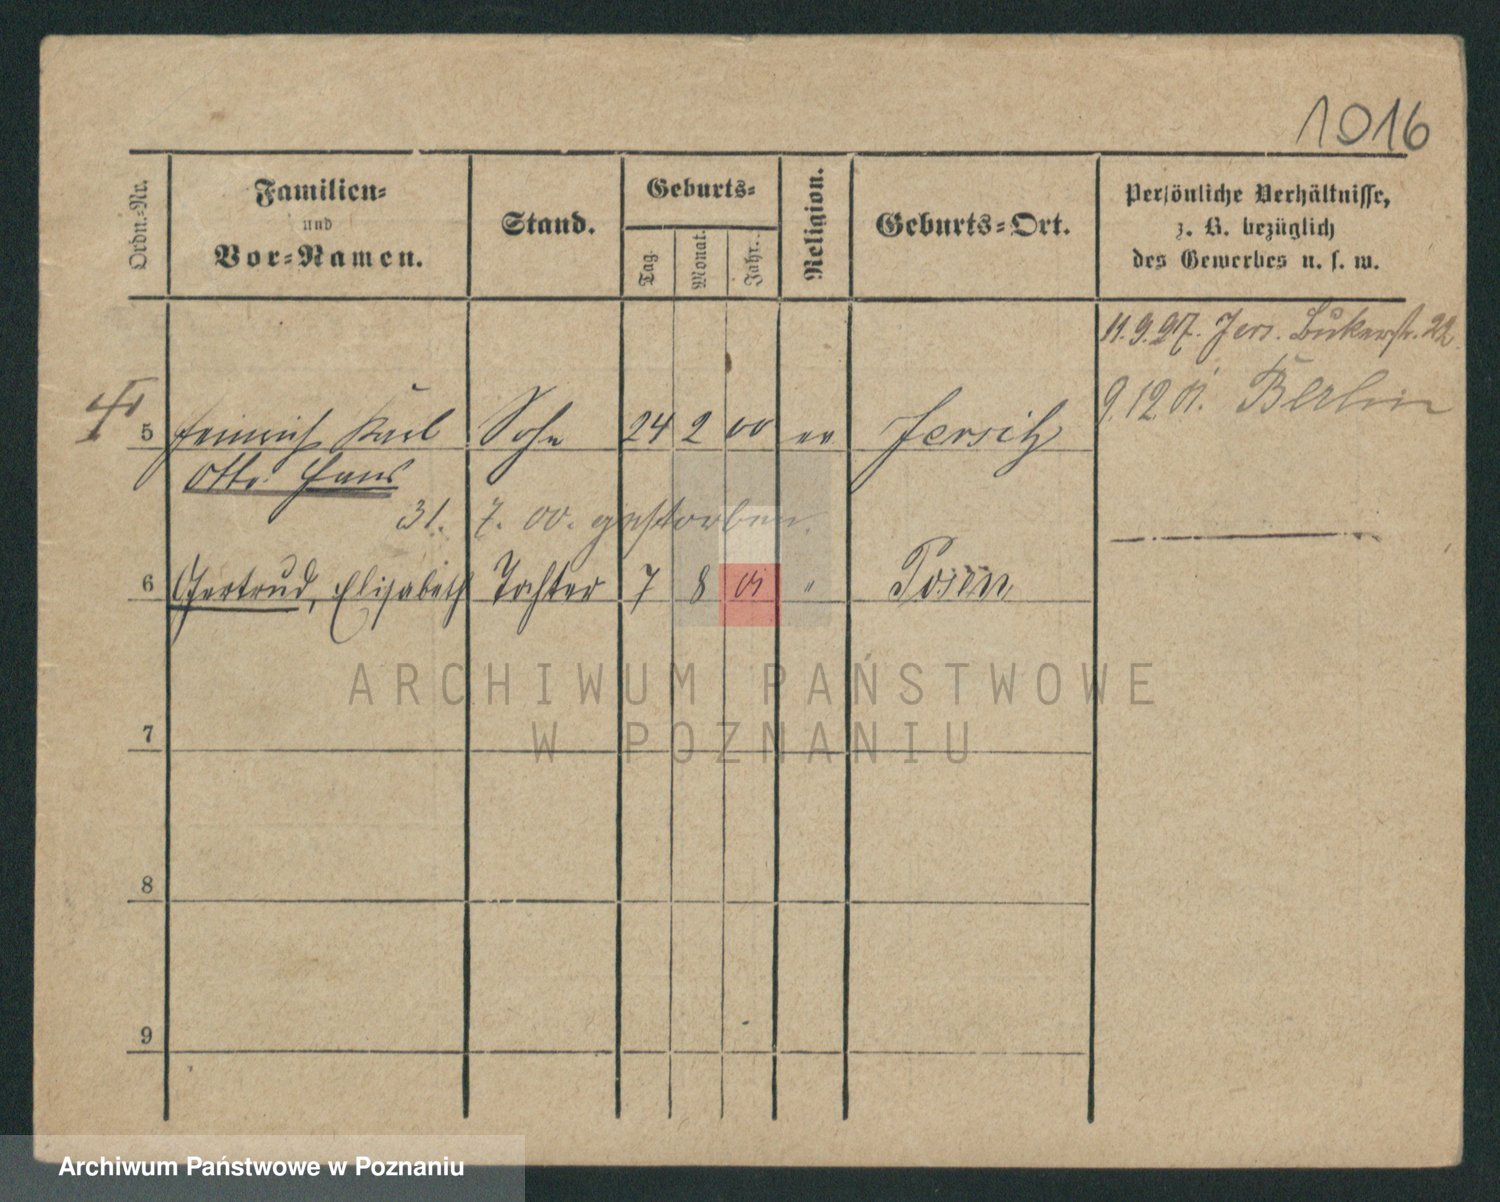 1016
Ordn.=Nr.
Familien=
und
Vor=Namen.
Stand.
Geburts=
Tag.
Monat.
Jahr.
Religion.
Geburts=Ort.
Persönliche Verhältnisse,
z. B. bezüglich
des Gewerbes u. s. w.
11.9.97. Jers. Bukerstr. 22.
9.12 01. Berlin
5 Heinrich Karl Sohn 24 2 00 Jersitz
Otto Hans
31. 7. 00. gestorben.
6 Gertrud, Elisabeth Tochter 7 8 01 " Posen
7
8
9
ARCHIWUM PAŃSTWOWE
W POZNANIU
Archiwum Państwowe w Poznaniu